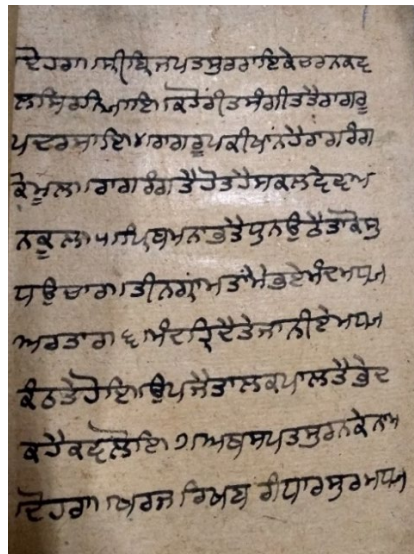 ਦੋਹਰਾ। ਸ੍ਰੀ ਬ੍ਰਿਜਪਤ ਸੁਰਰਾਇ ਕੇ ਚਰਨ ਕਵ
ਲ ਸਿਰ ਨਿਆਇ। ਕਹੋ ਰੀਤ ਸੰਗੀਤ ਤੈ ਰਾਗ ਰੂ
ਪ ਦਰਸਾਇ ੪ ਰਾਗ ਰੂਪ ਕੀ ਖਾਂਨ ਹੈ ਰਾਗ ਰੰਗ
ਕੋ ਮੂਲ। ਰਾਗ ਰੰਗ ਤੈ ਹੋਤ ਹੈ ਸਕਲ ਦੇਵ ਅ
ਨਕੂਲ ੫ ਪ੍ਰਿਥਮ ਨਾਭ ਤੈ ਧੁਨ ਉਠੈ ਤਾਕੋ ਸੁ
ਧ ਉਚਾਰ। ਤੀਨ ਗ੍ਰਾਮ ਤਾਂ ਮੈ ਭਏ ਮੰਦ ਮਧ੍ਯ
ਅਰ ਤਾਰ। ੬ ਮੰਦ ਰ੍ਰਿਦੈ ਤੇ ਜਾਨੀਏ ਮਧ੍ਯ
ਕੰਠ ਤੇ ਹੋਇ। ਉਪਜੈ ਤਾਲ ਕਪਾਲ ਤੈ ਭੇਦ
ਕਹੈ ਕਵ ਲੋਇ ੭ ਅਥ ਸਪਤ ਸੁਰਨ ਕੇ ਨਾਮ
ਦੋਹਰਾ। ਖਰਜ ਰਿਖਬ ਗੰਧਾਰ ਸੁਰ ਮਧ੍ਯ